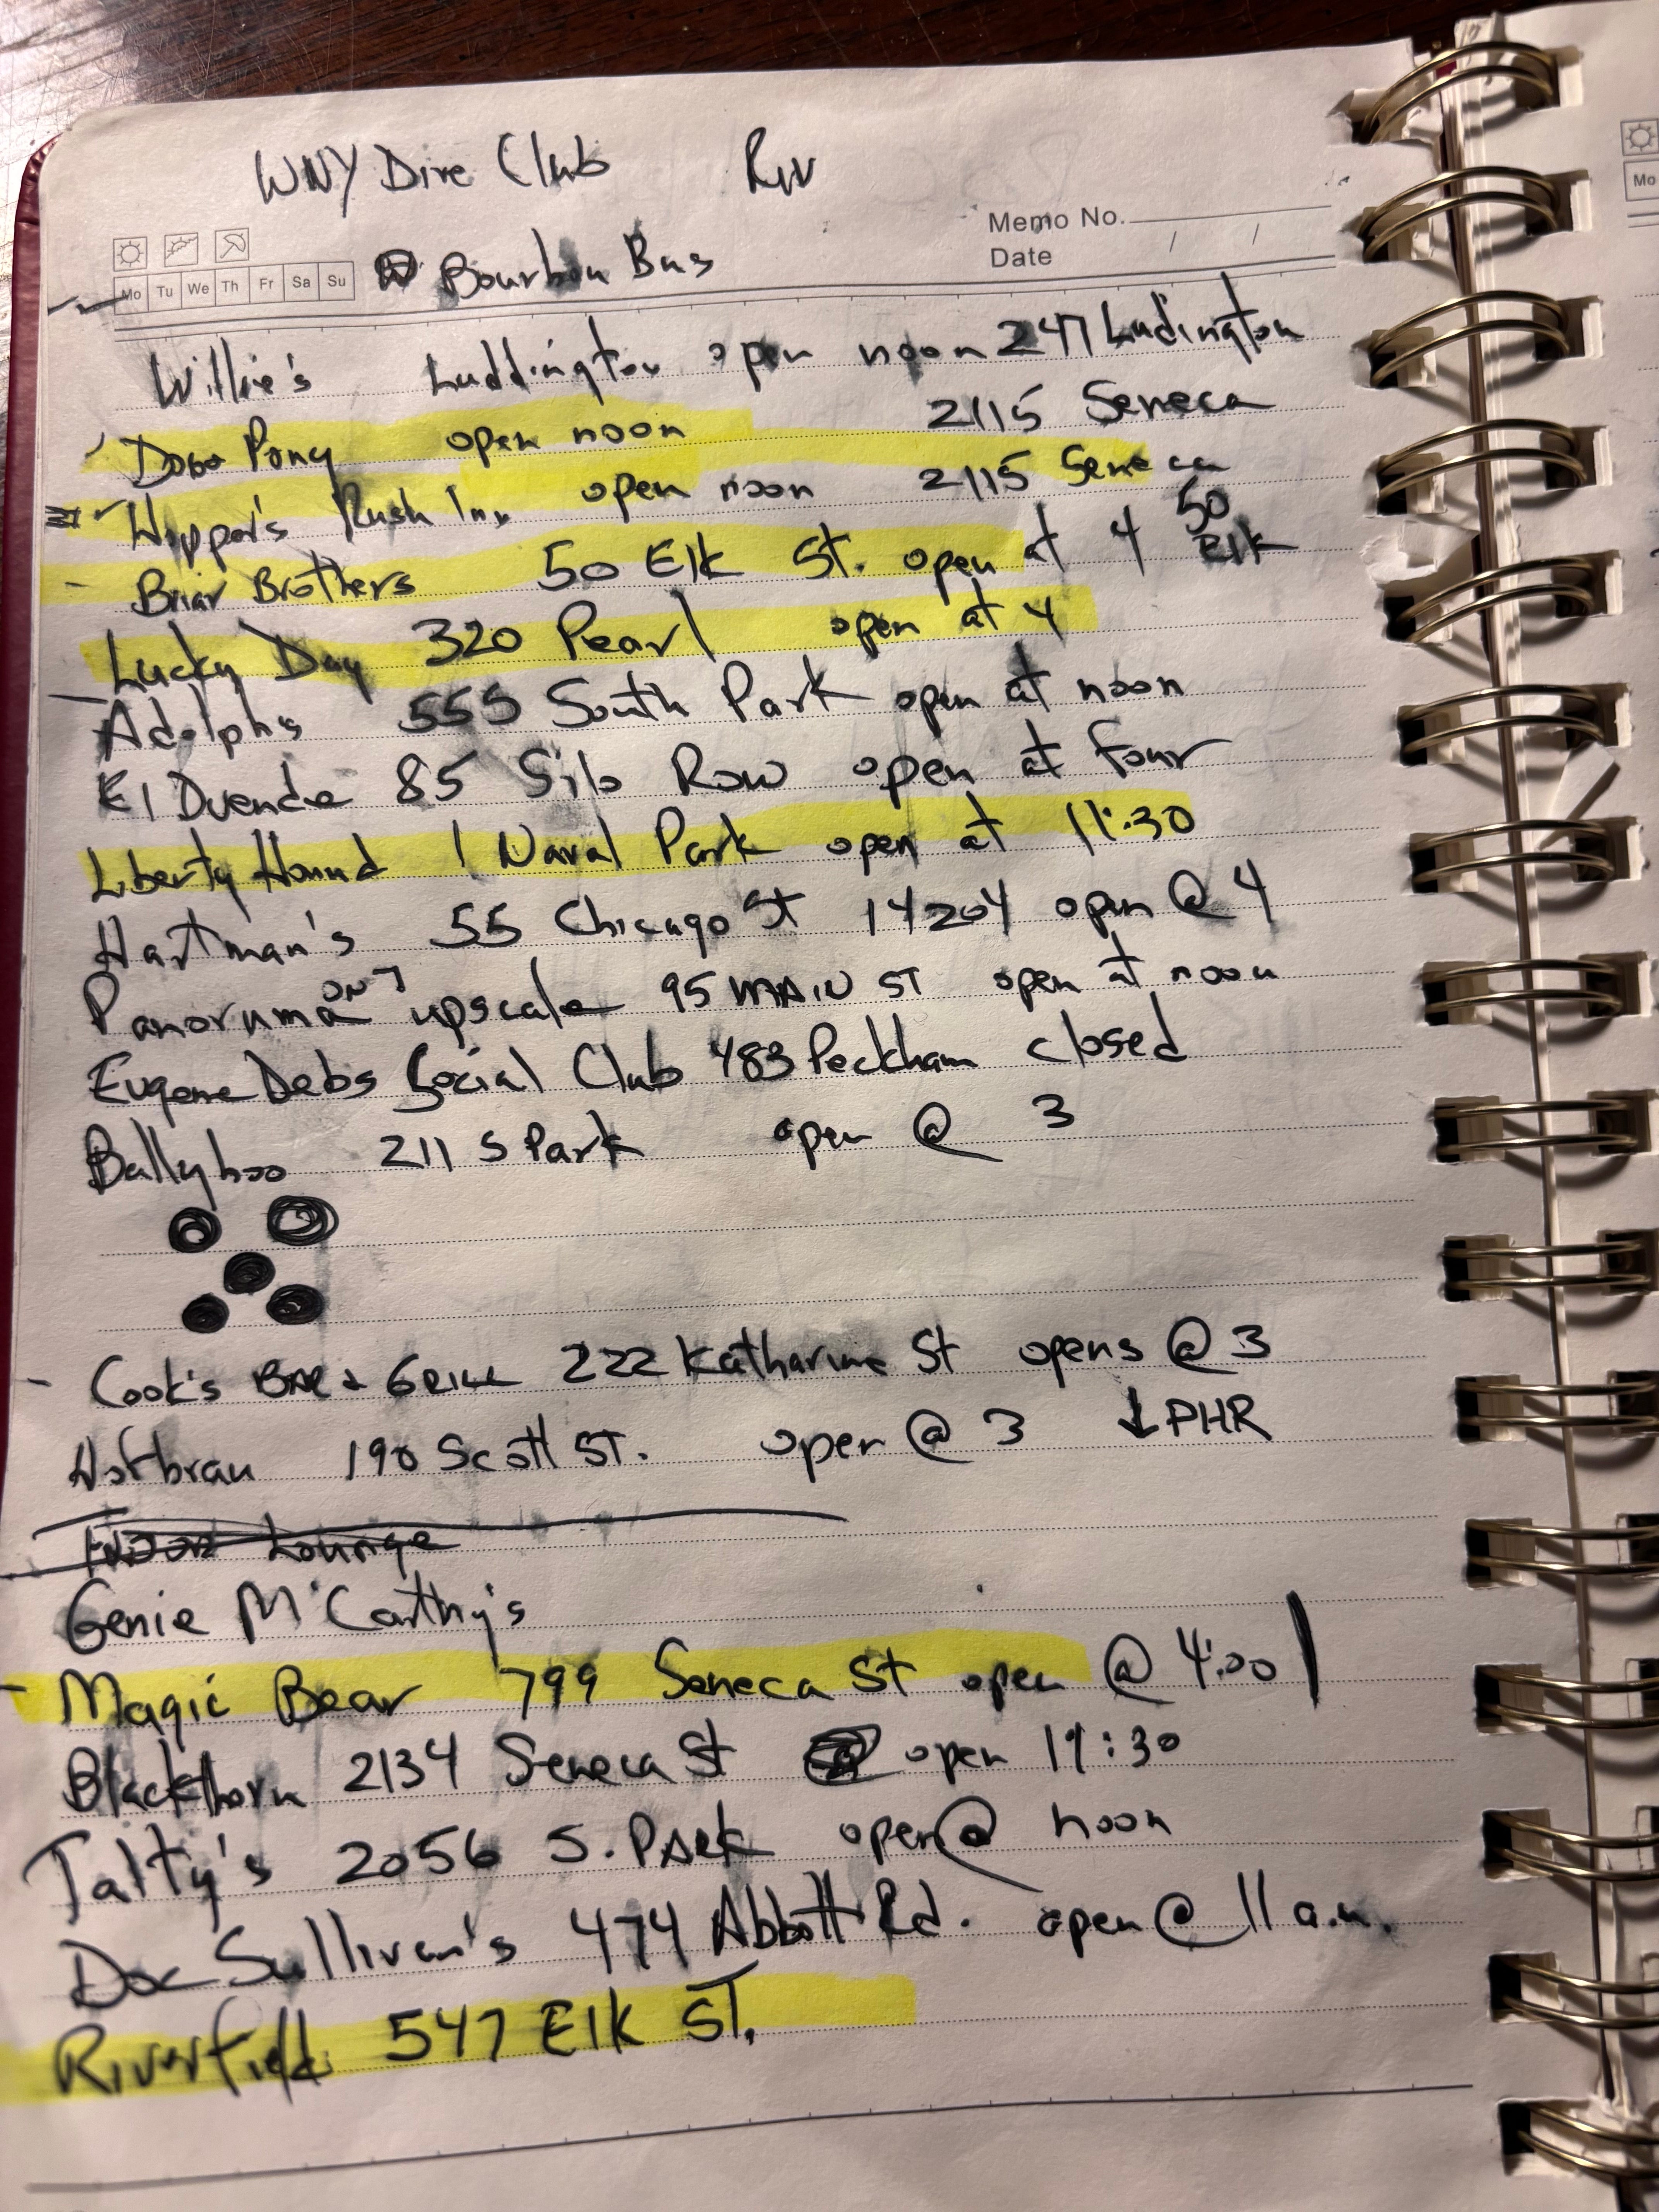 WNY Dive Club Riv
Memo No.
Date / /
Mo Tu We Th Fr Sa Su
Bourbon Bus
Willie's Luddington open noon 247 Ludington
Dobo Pony open noon 2115 Seneca
Hopper's Rush Inn open noon 2115 Seneca
Briar Brothers 50 Elk St. open at 4 50 Elk
Lucky Day 320 Pearl open at 4
Adolphs 555 South Park open at noon
El Duende 85 Silo Row open at four
Liberty Hound 1 Naval Park open at 11:30
Hartman's 55 Chicago St 14204 open @ 4
Panoruma on 7 upscale 95 MAIN ST open at noon
Eugene Debs Social Club 483 Peckham closed
Ballyhoo 211 S Park open @ 3
Cook's BAR & GRILL 222 Katharine St opens @ 3
Hofbrau 190 Scott ST. open @ 3 ↓ PHR
Lounge
Genie McCarthy's
Magic Bear 799 Seneca St open @ 4:00
Blackthorn 2134 Seneca St open 11:30
Talty's 2056 S. PArk open @ noon
Doc Sullivan's 474 Abbott Rd. open @ 11 a.m.
Riverfield 547 Elk ST.
Mo